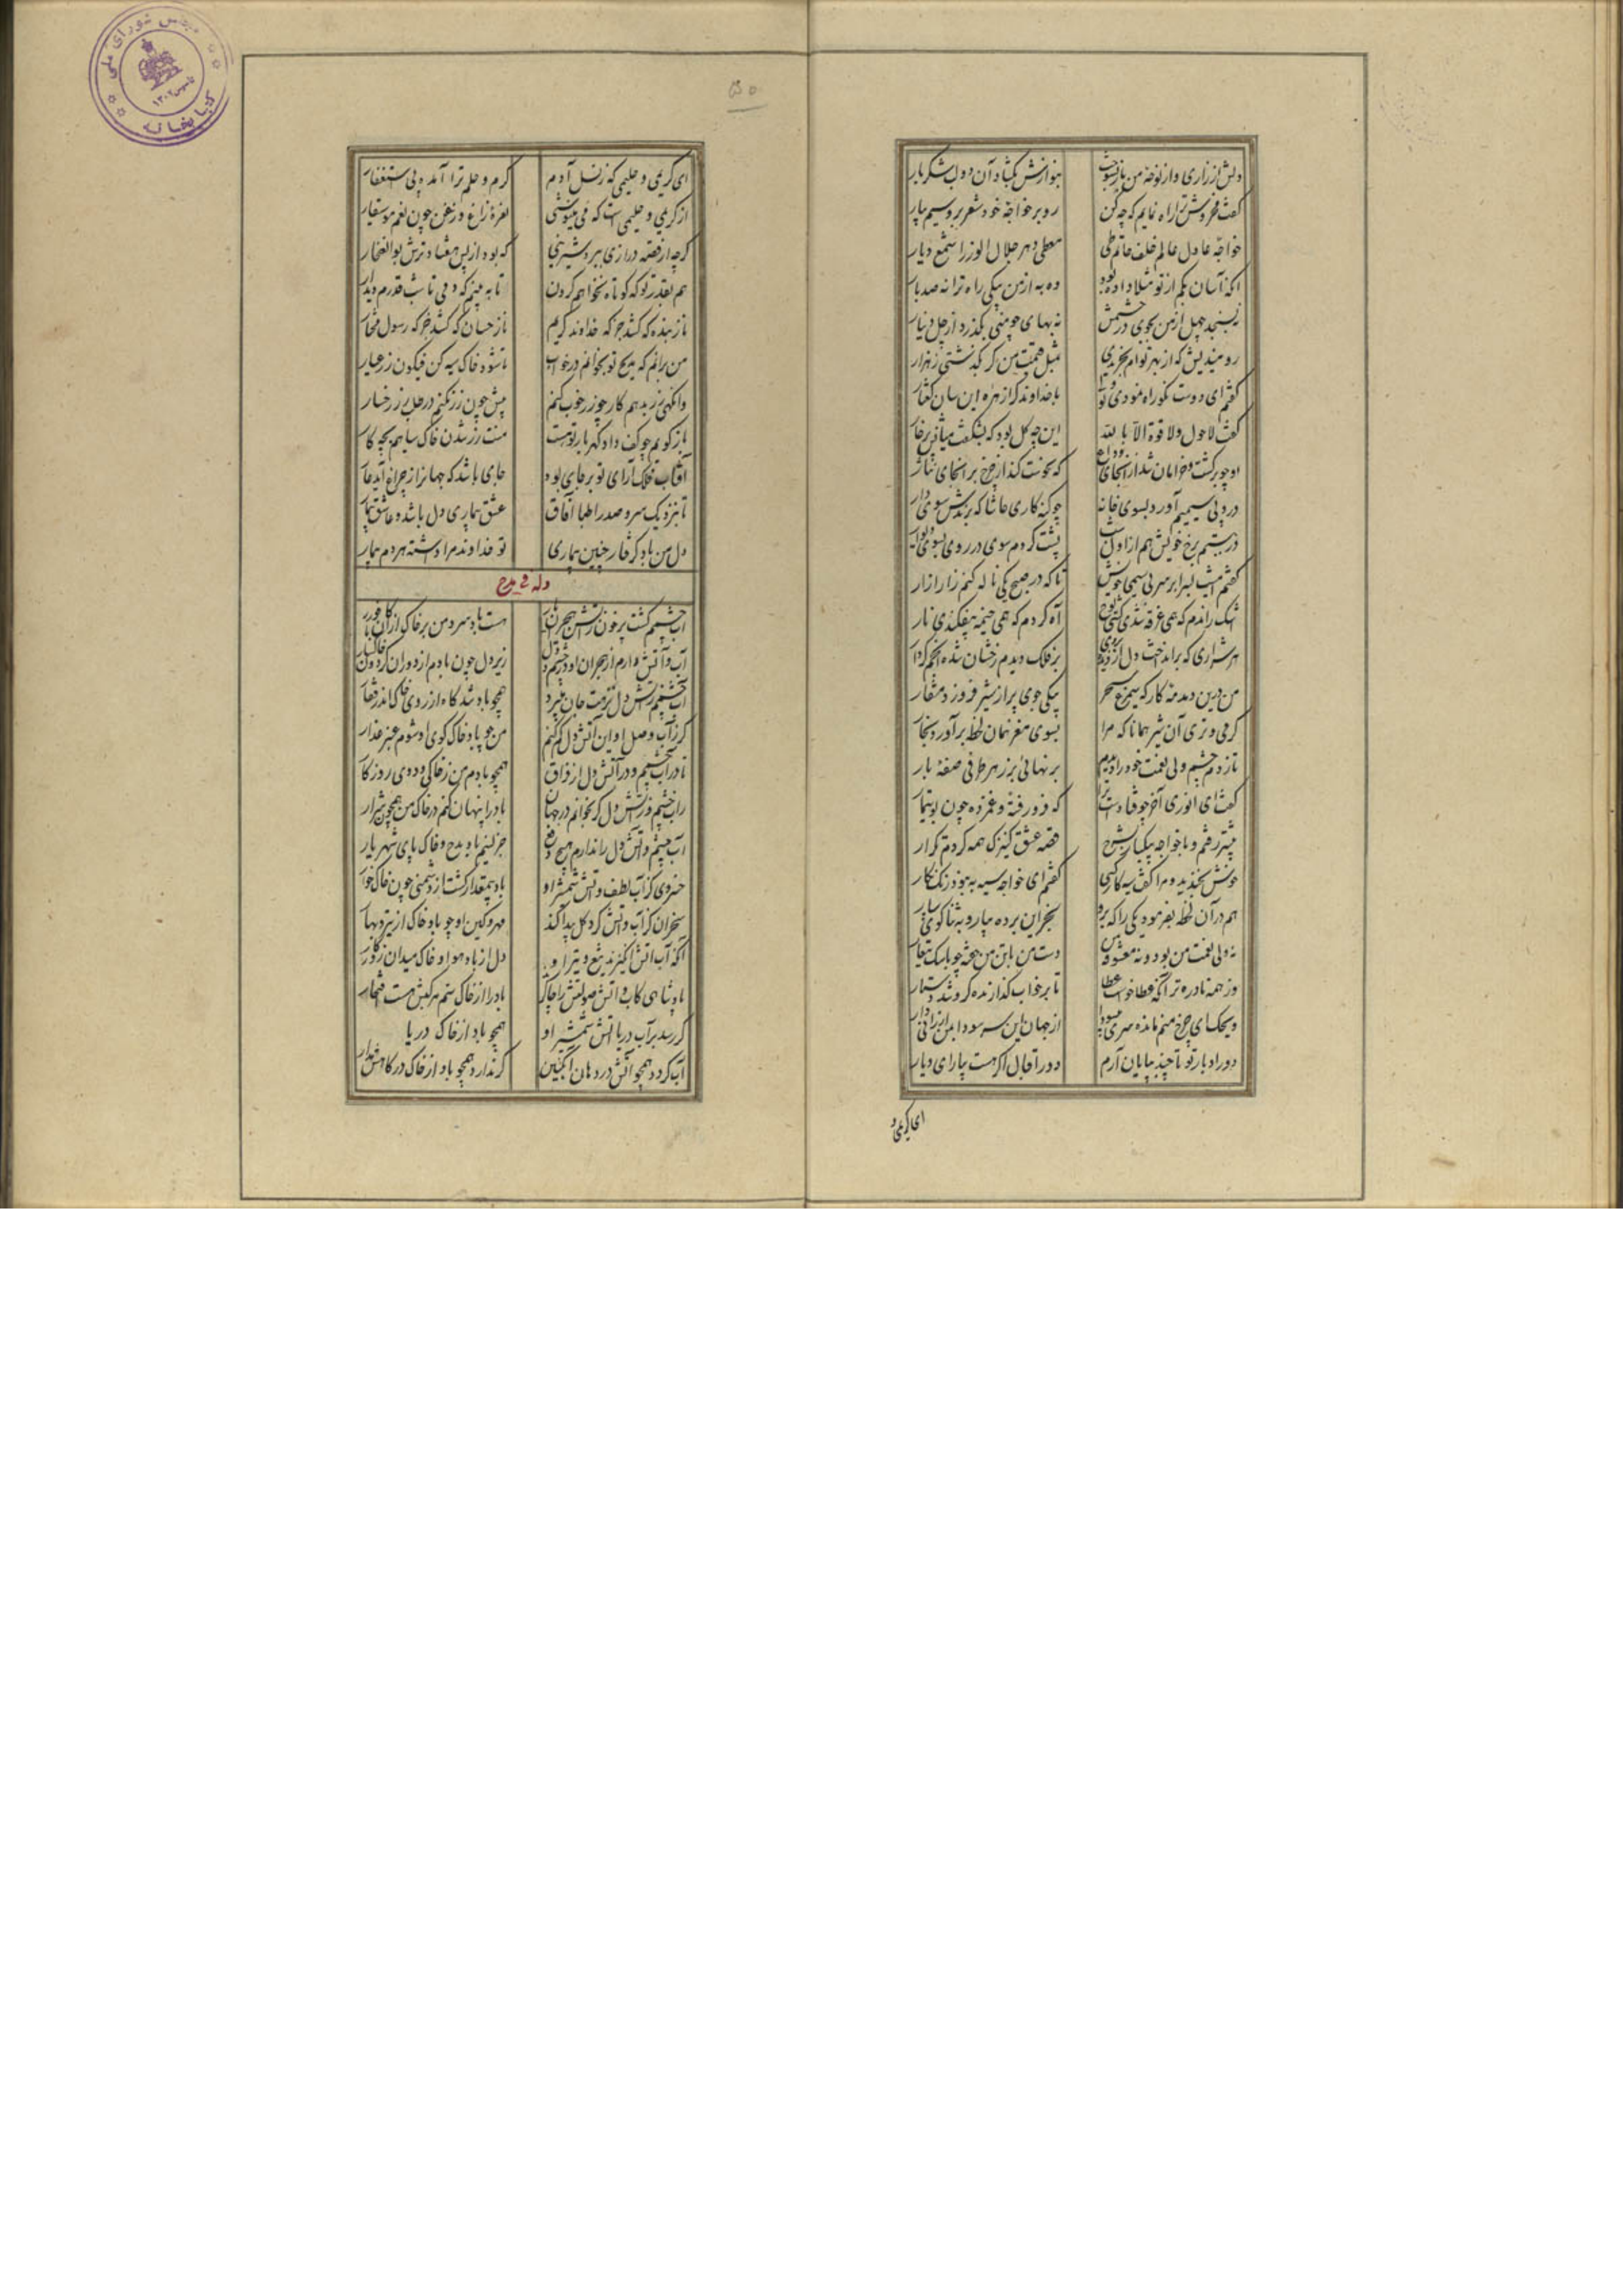 دلش از زاری و از نوحهٔ من باز بسوخت
بنوازش بگشاد آن دو لب شکر بار
گفت مخروش ترا راه نمایم که چه کن
رو بر خواجه خود شعر بر و سیم بیار
خواجه عادل عالم خلف حاتم طی
معطی دهر جلال الوزرا شمع دیار
آنکه آسان بکم از تو مثلا داده بود
ده به از من یکی راه ترا نه صد بار
نسنجد چهل از من بجوی در چشمش
نه بهای چو منی بگذرد از چل دینار
رو میندیش که از بهر توام بخریدی
بمثل قیمت من گر بگذشتی ز هزار
گفتم ای دوست نکو راه نمودی تو ولی
با خداوند کرا زهره این سان گفتار
گفت لاحول ولا قوة الا بالله
این چه گل بود که بشکفت میانش بر خار
او چو برگشت و خرامان شد از آنجای وداع
در وثی سیمیم آورد بسوی خانه
چو کنه کاری حاشا که برندش سوی دار
در ببستم برخ خویش هم از اول شب
پشت کردم سوی در روی بسوی دیوار
گفتم امشب ببرابر سر بی سیمی خویش
تا که در صبح یکی ناله کنم زارازار
اشک راندم که همی غرقه شدی کشتی نوح
آه کردم که همی خیمه بیفکندی نار
هر شراری که برانداخت دل از دیده
بر فلک دیدم رخشان شده انجم کردار
من درین دمدمه کار که سیمرغ سحر
بیکی جوی پر از شیر فرو زد منقار
گرمی و تری آن شیر همانا که مرا
بسوی مغز نهان لحظه برآورد بخار
تا زدم چشم ولی نعمت خود را دیدم
بر نهالی بزر هر طرفی صفهٔ بار
گفت ای انوری آخر چه فتادست ترا
که فرو رفته و غمزده چون بوتیمار
پیشتر رفتم و با خواجه بیکبار بشرح
قصه عشق کنیزک همه کردم تکرار
خوش بخندید و مرا گفت سیه کار کسی
گفتم ای خواجه سیه به بود زنگ نگار
هم در آن لحظه بفرمود یکی را که برو
بخر این برده بیار و به ثناگوی سپار
نه ولی نعمت من بود و نه معشوقه من
وز همه نادره تر آنکه عطا خواست عطا
تا بر خواب گذارنده گرو شد دستار
ویحک ای چرخ منم مانده سری پر سودا
دور ادبار تو تا چند بپایان آرم
دور اقبال اگر هست بیار ای دیار
ای کریمی و
ای کریمی و حلیمی که ز نسل آدم
کرم و حلم ترا آمده بی استغفار
از کریمی و حلیمی است که می بنیوشی
نغرهٔ زاغ و زغن چون نغم موسیقار
گرچه از قصه درازی ببرد شیرینی
که بود از پس هفتاد ترش بوالغنجار
هم بقدر تو که کوتاه نخواهم کردن
تا به بینم که دمی تا شب قدرم دیدار
ناز بنده که کشد جز که خداوند کریم
ناز حسان که کشد جز که رسول مختار
من برانم که مدیح تو بخوانم در خواب
تا شود خاک سیه کن فیکون زر عیار
وانگهی زر بدهم کار چو زر خوب کنم
پیش چون زر نکنم در طلب زر رخسار
باز گویم چو کف راد گهربار تو هست
منت زر شدن خاک سیاهم بچه کار
آفتاب فلک آرای تو بر جای بود
جای باشد که جهانرا ز چراغ آید عار
تا بنزدیک سر و صدر اطبا آفاق
عشق بیماری دل باشد و عاشق بیمار
دل من باد گرفتار چنین بیماری
تو خداوند مرا داشته هر دم بیمار
وله فی مدح
آب چشمم گشت پر خون ز آتش هجران یار
هست باد سرد من بر خاک از آن کافور بار
آب و آتش دارم از هجران او در چشم و دل
زیر دل چون بادم از دوران گردون خاکسار
آب چشمم ز آتش دل نزهت جان میبرد
همچو باد تند کاه از روی خاک اندر قفار
گر ز آب وصل او این آتش دل کم کنم
من چو باد خاک کوی او شوم عنبر عذار
تا در آب چشمم و در آتش دل از فراق
همچو بادم من ز خاکی و دوی روزگار
راز چشمم ز آتش دل گر بخوانم در جهان
باد را پنهان کنم در خاک من همچون شرار
آب چشم و آتش دل را ندارم هیچ دفع
جز نسیم باد مدح و خاک پای شهریار
خسروی کز آب لطف و آتش شمشیر او
باد بی مقدار گشت از دشمنی چون خاک خوار
سنجر آن کز آب و آتش گرد گل پیدا کند
مهر و کین او چو باد و خاک از نیر و بهار
آنکه آب آتش انگیزند تیغ و تیر او
دل ز باد هوا و خاک میدان ز کارزار
پادشاهی کاب و آتش صولتش را چاکر
باد را از خاک سم مرکبش هست افتخار
گر رسد بر آب دریا آتش شمشیر او
همچو باد از خاک دریا
آب گردد همچو آتش در دهان انگبین
گر ندارد همچو باد از خاک درگاهش مدار
کتابخانه مجلس شورای ملی